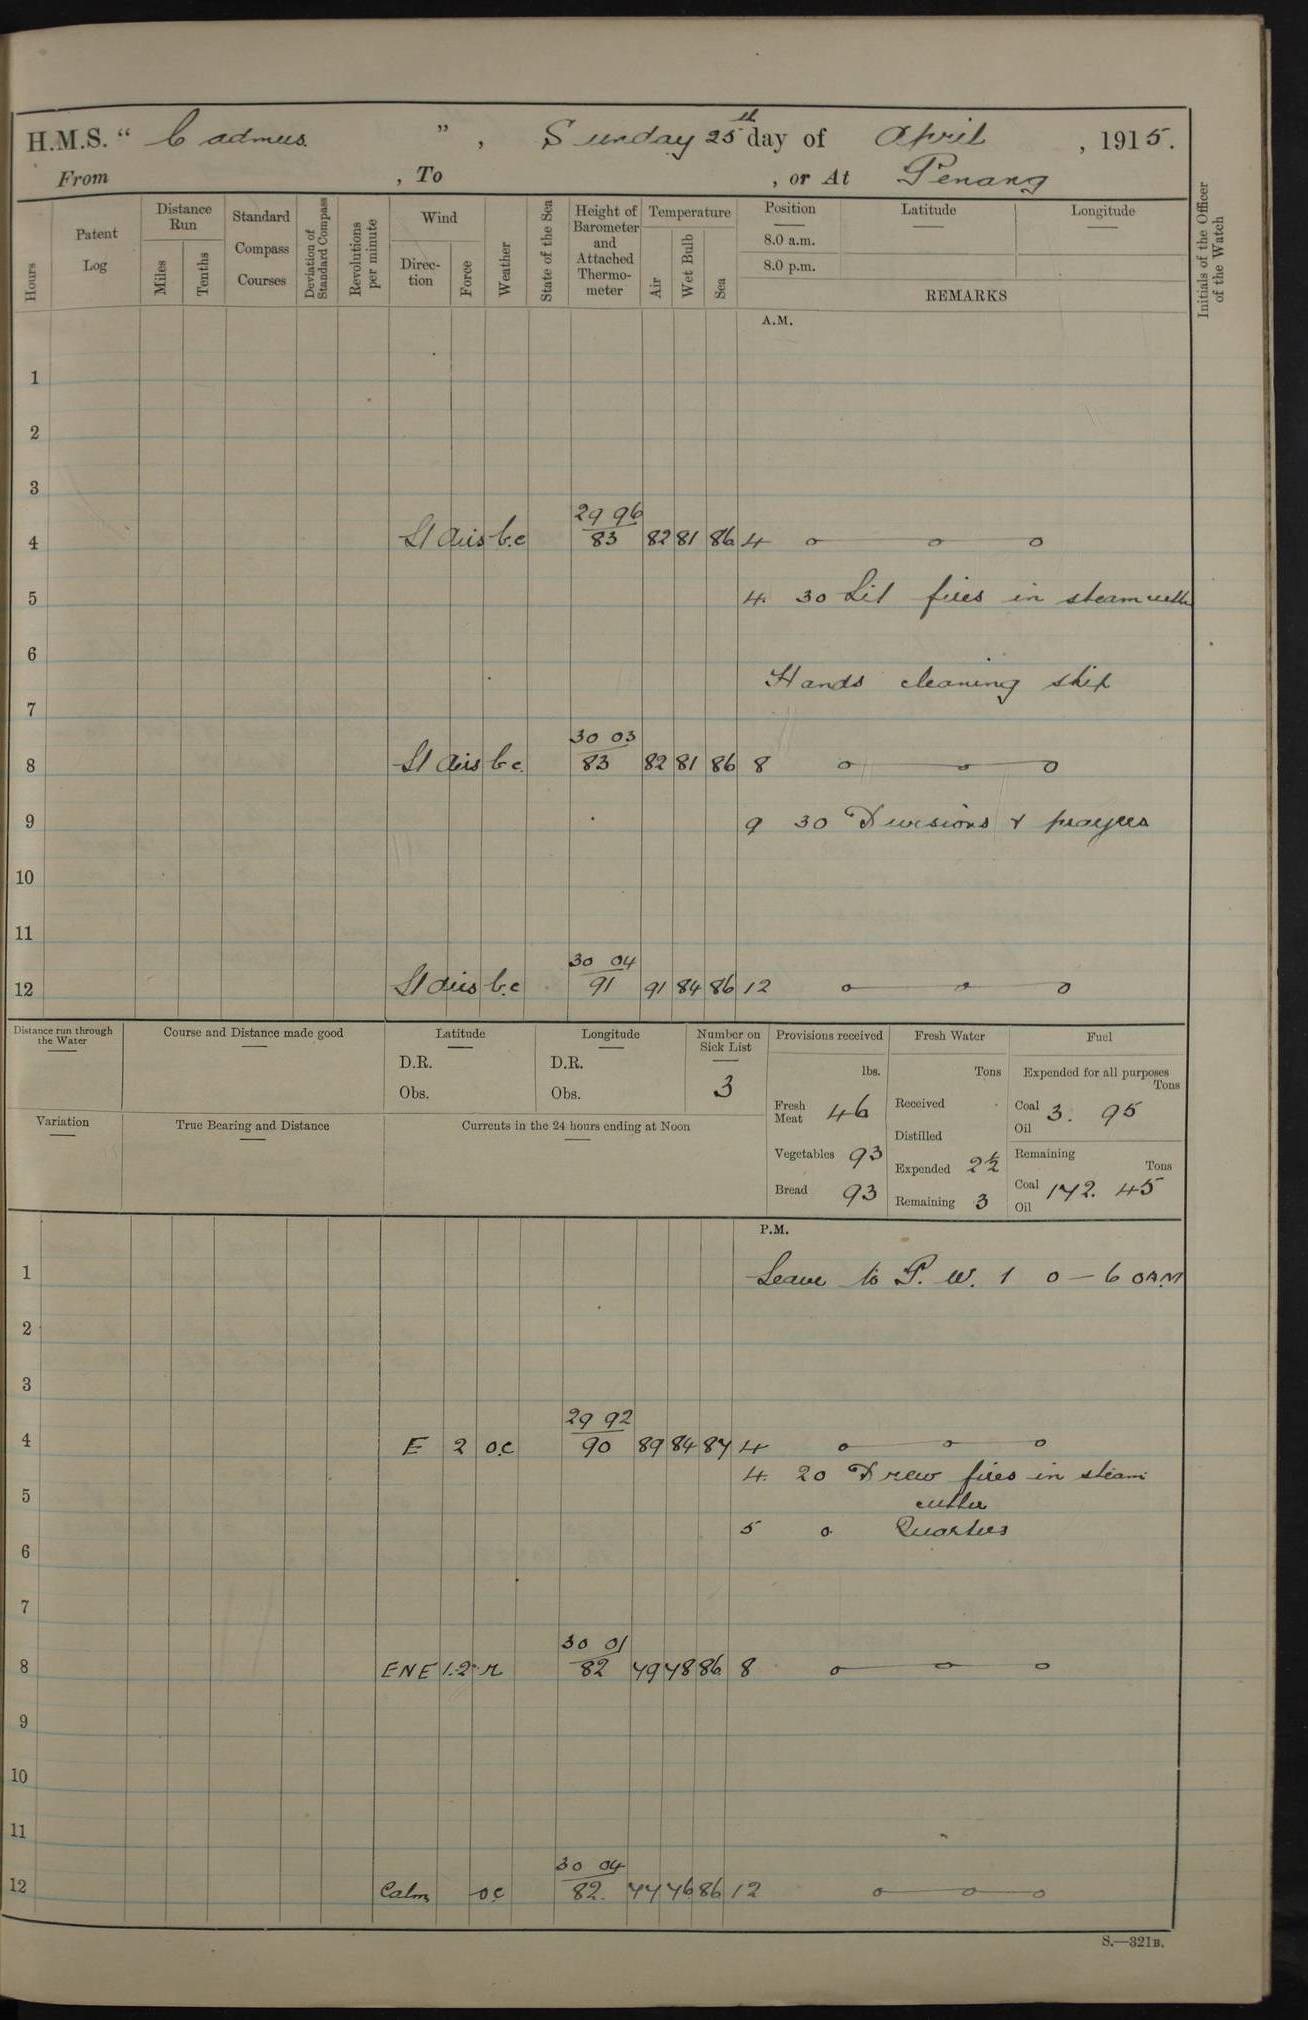 H.M.S. “ Cadmus. ”, Sunday 25th day of April, 1915.
From , To , or At Penang
Hours
Patent Log
Distance Run
Miles
Tenths
Standard Compass Courses
Deviation of Standard Compass
Revolutions per minute
Wind
Direction
Force
Weather
State of the Sea
Height of Barometer and Attached Thermometer
Temperature
Air
Wet Bulb
Sea
Position
8.0 a.m.
8.0 p.m.
Latitude
Longitude
REMARKS
Initials of the Officer of the Watch
A.M.
1
2
3
29 96
4 Lt airs b.c 83 82 81 86 4 o o o
5 4. 30 Lit fires in steam cutter
6
Hands cleaning ship
7
30 03
8 Lt airs b.c. 83 82 81 86 8 o o o
9 9 30 Divisions & prayers
10
11
30 04
12 Lt airs b.c 91 91 84 86 12 o o o
Distance run through the Water
Course and Distance made good
Latitude
D.R.
Obs.
Longitude
D.R.
Obs.
Number on Sick List
3
Provisions received
lbs.
Fresh Meat 46
Vegetables 93
Bread 93
Fresh Water
Tons
Received
Distilled
Expended 2½
Remaining 3
Fuel
Expended for all purposes
Tons
Coal 3. 95
Oil
Remaining
Tons
Coal 172. 45
Oil
Variation
True Bearing and Distance
Currents in the 24 hours ending at Noon
P.M.
1 Leave to P. W. 1 0 — 6 0 A.M
2
3
29 92
4 E 2 o.c 90 89 84 87 4 o o o
4. 20 Drew fires in steam
5 cutter
5 o Quarters
6
7
30 01
8 ENE 1.2 r 82 79 78 86 8 o o o
9
10
11
30 04
12 Calm oc 82. 77 76 86 12 o o o
S.—321B.